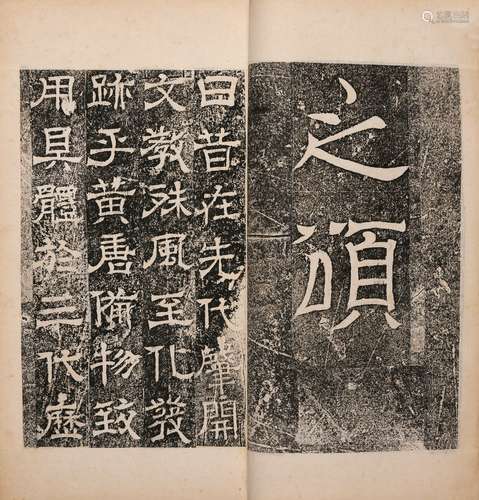 之頌
曰昔在先代肇開
文教殊風至化發
跡乎黃唐備物致
用具體於三代歷